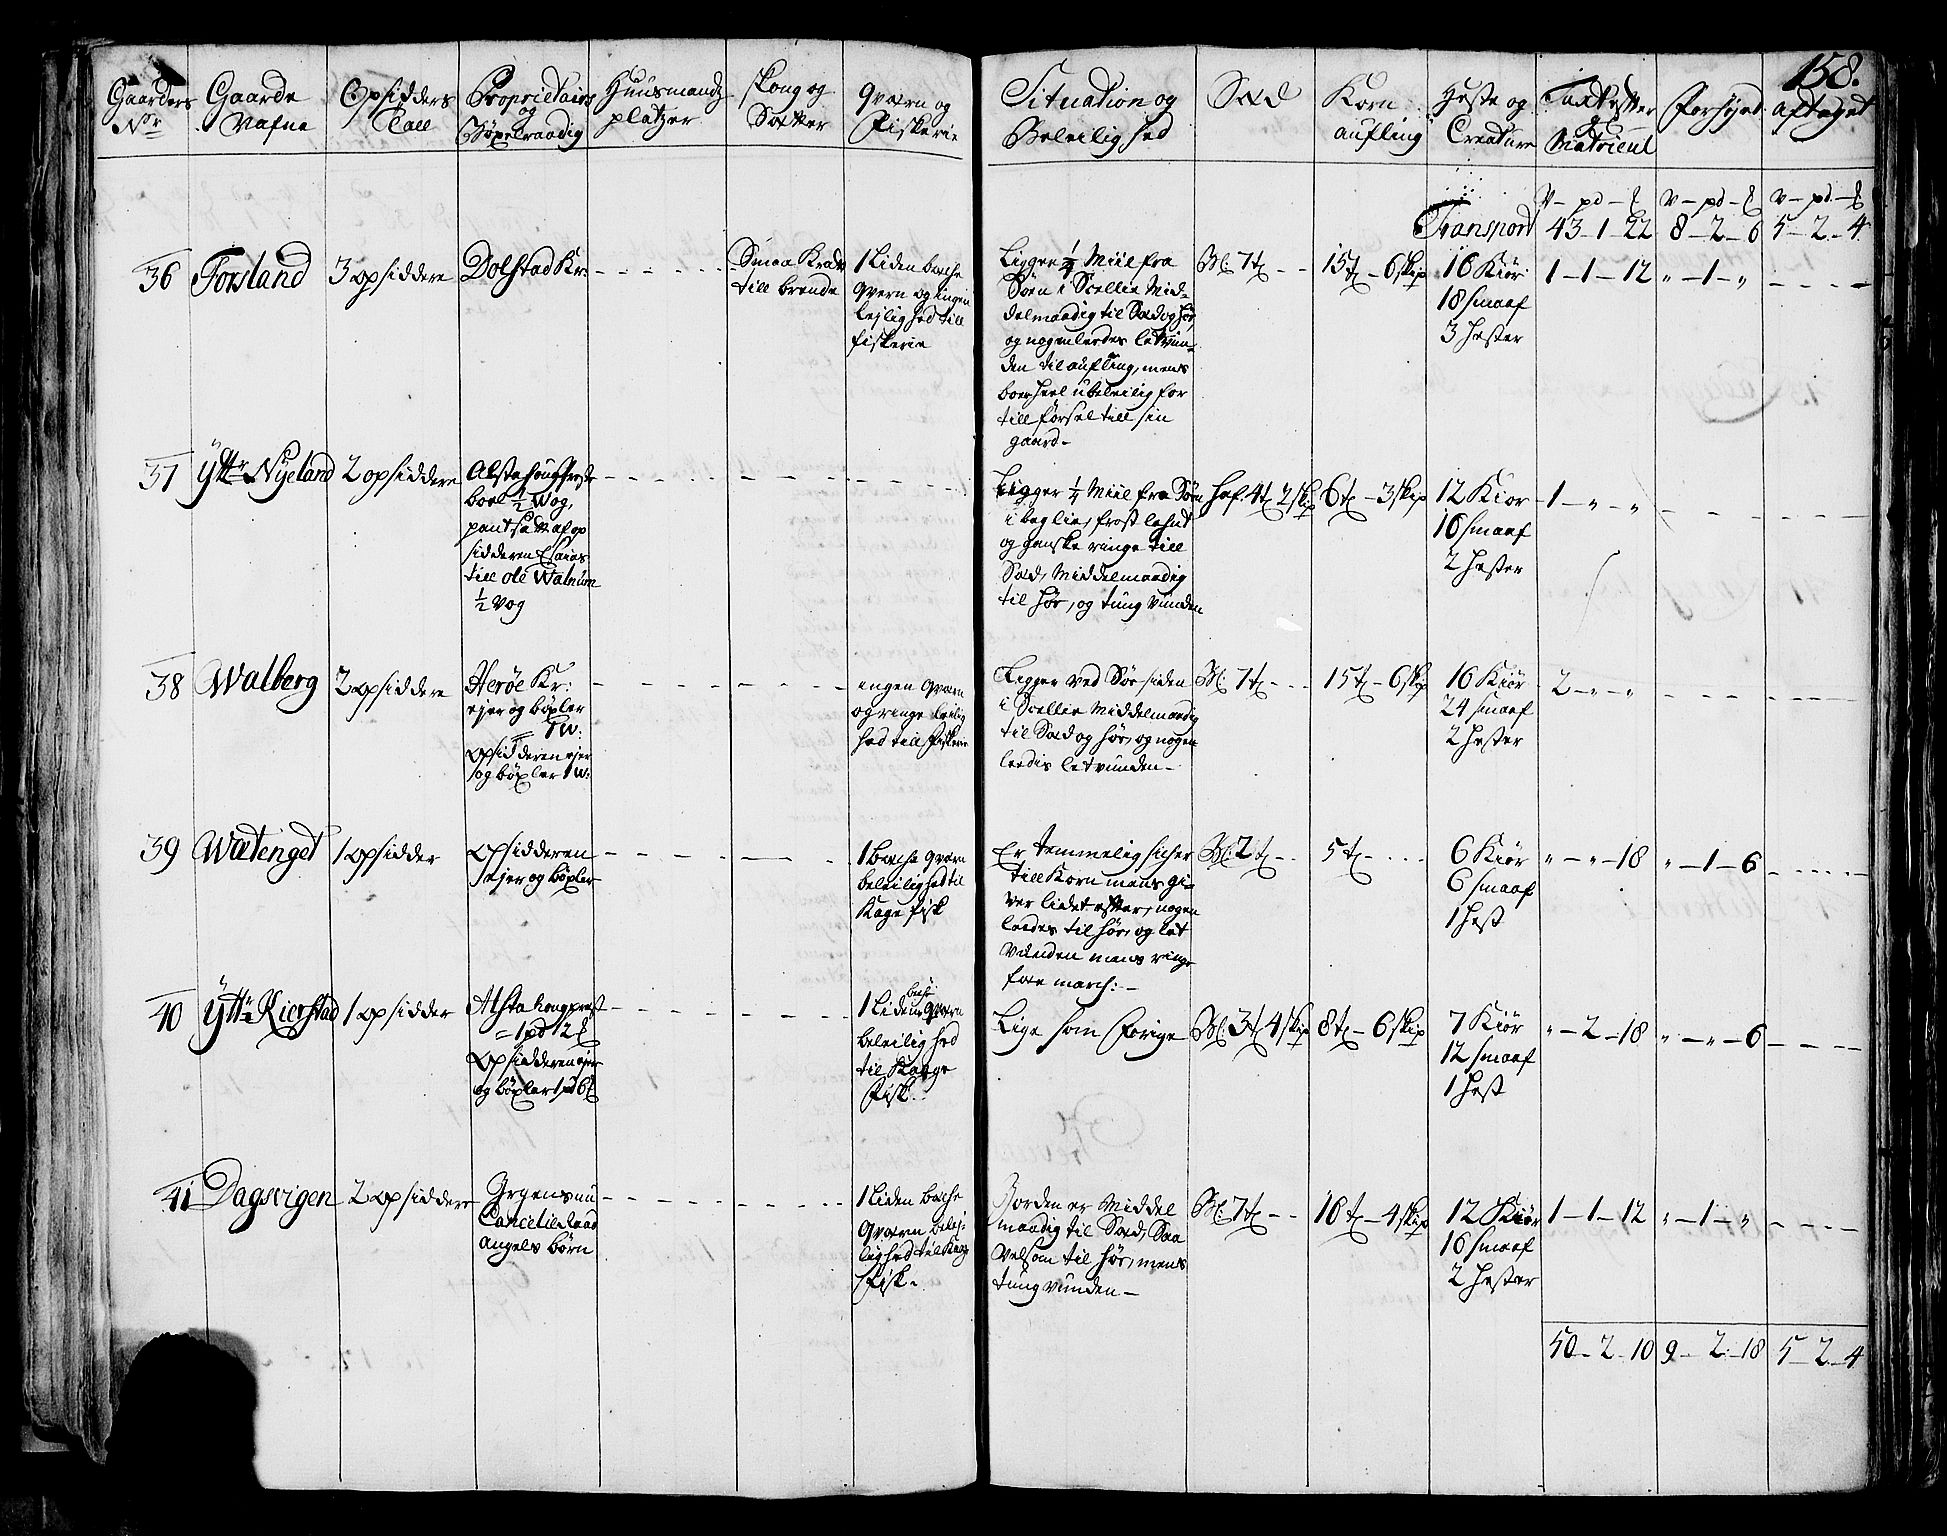 158.
Gaarders Nor
Gaarde Nafne
Opsidders Tall
Proprietairs og Bøxelraadig
Huusmands platzer
Skoug og Sætter
Qværn og Fiskerie
Situation og Beleilighed
Sæd
Korn aufling
Heste og Creature
Taxt efter Matricul
Forhøyet
Aftaget
V - pd - V - pd - V - pd -
Transport 43-1-22 8-2-6 5-2-4
36 Forsland 3 opsiddere Dolstad Kr:
Smaa Kratt
till brende
1 Liden beche
Qvern og ingen
lejlighed till
fiskerie
Ligger 1/4 Miil fra
Søen i Soellie Mid-
delmaadig til Sæd og høe,
og nogenledes letvun-
den til aufling, mens
boer heel ubeleilig for
till førsel till sin
gaard -
Bl: 7 t
15 t - 6 skip
16 Kiør
18 smaaf
3 hester
1-1-12 " -1- "
37 Ytr Nyeland 2 opsiddere
boel 1/2 Wog,
pantsat af op
sidderen Esaias
till ole Walnum
1/2 Vog
Ligger 1/4 Miil fra Søen
i baglie, frost lehnt
og ganske ringe till
Sæd, Middelmaadig
til høe, og tung vunden
haf. 4 t 2 skip
6 t - 3 skip
12 Kiør
16 smaaf
2 hester
1 - " - "
38 Walberg 2 opsiddere
Herøe Kr:
ejer og bøxler
1 W:
opsidderen ejer
og bøxler 1 W:
ingen Qværn
og ringe leilig
hed till fiskerie
Ligger ved Søe siden
i Soellie Middelmaadig
til Sæd og høe, og nogen
leedis letvunden -
Bl: 7 t
15 t - 6 skip
16 Kiør
24 smaaf
2 hester
2 - " - "
39 Wætenget 1 opsidder
opsidderen
ejer og bøxler
1 beche Qværn
beleilighed til
Kage fisk
Er temmelig sicher
till Korn mens gi-
ver lidet efter, nogen
leedes til høe, og let
vunden mens ringe
foee march: -
Bl: 2 t
5 t
6 Kiør
6 smaaf
1 hest
" - " -18 " -1-6
40 Ytr Kierstad 1 opsidder
= 1 pd 12
opsidderen ejer
og bøxler 1 pd 6
1 Liden beche Qværn
beleilighed
til Kaage
Fisk.
Lige som Forige
Bl: 3 t 4 skip
8 t - 6 skip
7 Kiør
12 smaaf
1 hest
" -2-18 " - " -6
41 Dagsvigen 2 opsiddere
Cancelie Raad
Angels børn
1 Liden beche
Qværn belej-
lighed til Kaage
fisk.
Jorden er Middel
maadig til Sæd, Saa
velsom til høe, mens
tung vunden -
Bl: 7 t
16 t - 4 skip
12 Kiør
16 smaaf
2 hester
1-1-12 " -1- "
50-2-10 9-2-18 5-2-4